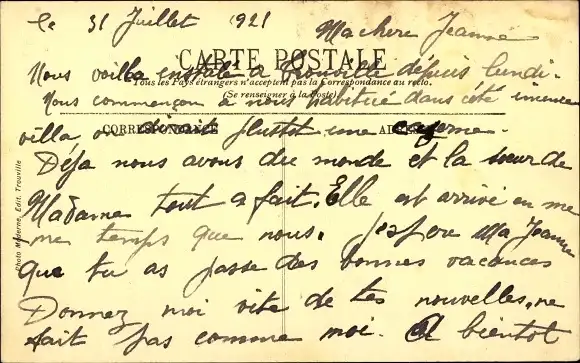 le 31 Juillet 1921
Ma chere Jeanne
CARTE POSTALE
Nous voilla installé a Trouville dépuis lundi.
Tous les Pays étrangers n'acceptent pas la Correspondance au recto.
(Se renseigner à la Poste)
Nous commençon a nous habitue dans cété imence
villa on dirait plustot une caserne.
CORRESPONDANCE
Déja nous avons du monde et la sœur de
Madame tout a fait. Elle est arrivé en me
me temps que nous. J'espere Ma Jeanne
que tu as passe des bonnes vacances
Donnez moi vite de tes nouvelles, ne
fait pas comme moi. A bientot
Photo Moderne, Edit. Trouville